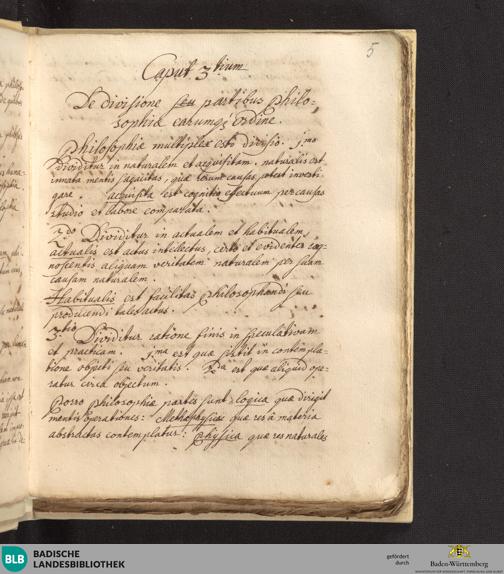 5
Caput 3tium
De divisione seu partibus Philo-
sophiæ earumq; ordine.
Philosophiæ multiplex est divisio. 1mo
Dividitur in naturalem et acquisitam. naturalis est
innata mentis sagacitas, quæ rerum causas potest investi-
gare. acquisita est cognitio effectuum per causas
studio et labore comparata.
2do Dividitur in actualem et habitualem
actualis est actus intellectus, certe et evidenter cog-
noscentis aliquam veritatem naturalem per suam
causam naturalem.
Habitualis est facilitas Philosophandi seu
producendi tales actus.
3tio Dividitur ratione finis in speculativam
et practicam. 1ma est quæ sistit in contempla-
tione objecti seu veritatis. 2da est quæ aliquid ope-
ratur circa objectum.
Porro Philosophiæ partes sunt: Logica quæ dirigit
mentis operationes: Methaphysica quæ res à materia
abstractas contemplatur: Physica quæ res naturales
BLB
BADISCHE
LANDESBIBLIOTHEK
gefördert
durch
Baden-Württemberg